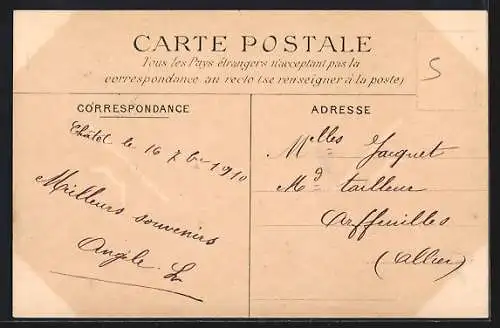 CARTE POSTALE
Tous les Pays étrangers n'acceptant pas la
correspondance au recto (se renseigner à la poste)
S
CORRESPONDANCE
Châtel le 16 7bre 1910
Meilleurs souvenirs
Angèle L
ADRESSE
Melles Jacquet
Md tailleur
Arfeuilles
(Allier)